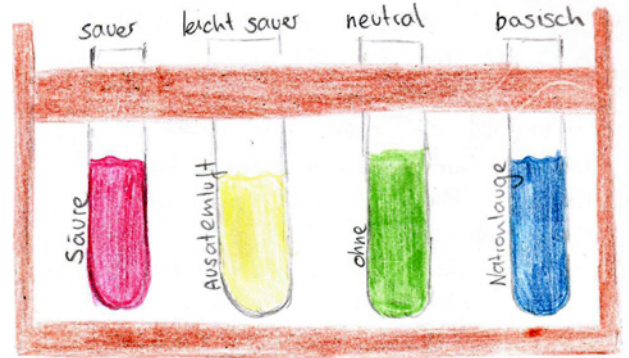 sauer
leicht sauer
neutral
basisch
Säure
Ausatemluft
ohne
Natronlauge